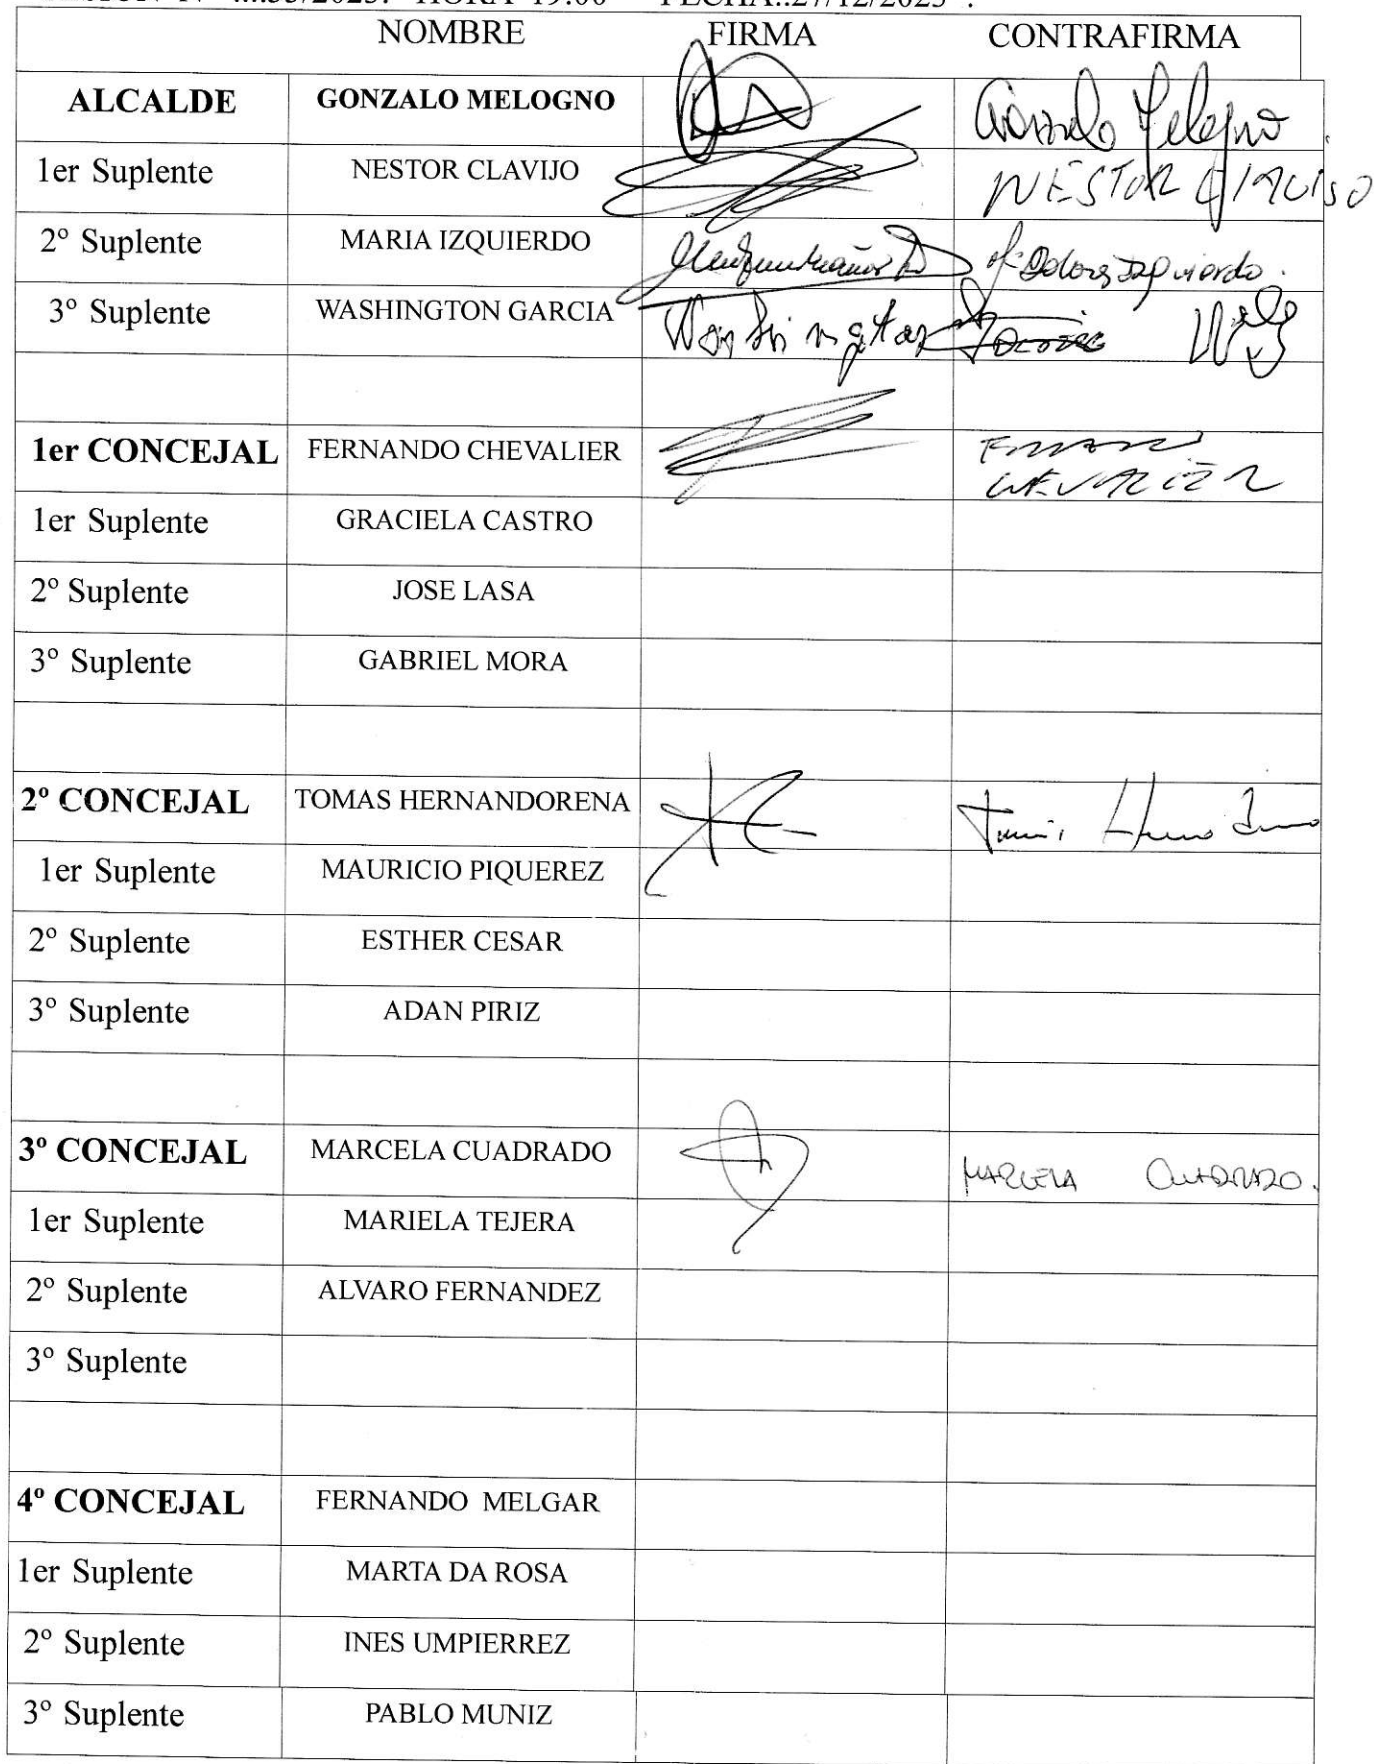 HORA 19:00 FECHA:.27/12/2023 .
NOMBRE FIRMA CONTRAFIRMA
ALCALDE GONZALO MELOGNO Gonzalo Melogno
1er Suplente NESTOR CLAVIJO NESTOR CLAVIJO
2º Suplente MARIA IZQUIERDO Mª Dolores Izquierdo.
3º Suplente WASHINGTON GARCIA Washington Garcia
1er CONCEJAL FERNANDO CHEVALIER CHEVALIER
1er Suplente GRACIELA CASTRO
2º Suplente JOSE LASA
3º Suplente GABRIEL MORA
2º CONCEJAL TOMAS HERNANDORENA
1er Suplente MAURICIO PIQUEREZ
2º Suplente ESTHER CESAR
3º Suplente ADAN PIRIZ
3º CONCEJAL MARCELA CUADRADO MARCELA CUADRADO.
1er Suplente MARIELA TEJERA
2º Suplente ALVARO FERNANDEZ
3º Suplente
4º CONCEJAL FERNANDO MELGAR
1er Suplente MARTA DA ROSA
2º Suplente INES UMPIERREZ
3º Suplente PABLO MUNIZ